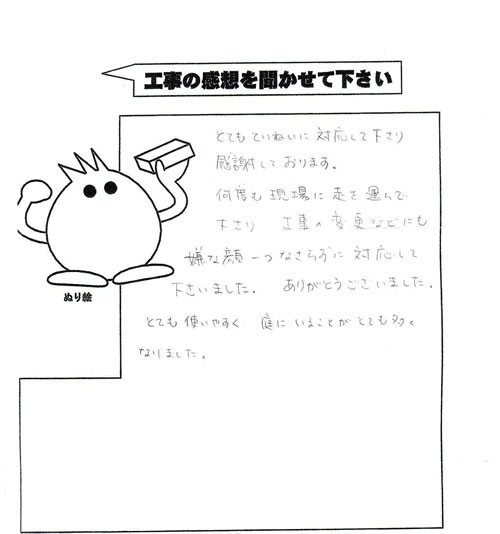 工事の感想を聞かせて下さい
とてもていねいに対応して下さり
感謝しております。
何度も現場に足を運んで
下さり 工事の変更などにも
嫌な顔一つなさらずに対応して
下さいました. ありがとうございました.
とても使いやすく 庭にいることがとても多く
なりました。
ぬり絵